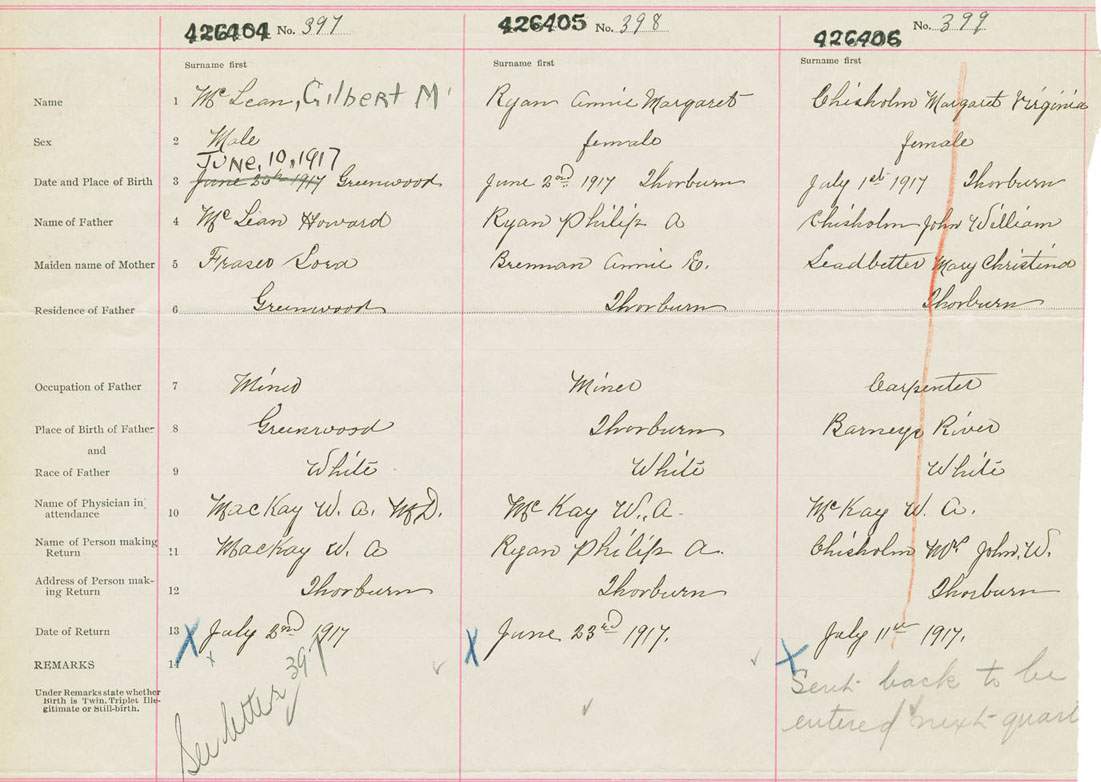 426404 No. 397 426405 No. 398 426406 No. 399
Surname first Surname first Surname first
Name 1 McLean, Gilbert M Ryan Annie Margaret Chisholm Margaret Virginia
Sex 2 Male female female
JUNE, 10, 1917
Date and Place of Birth 3 June 20th 1917 Greenwood June 2nd 1917 Thorburn July 1st 1917 Thorburn
Name of Father 4 McLean Howard Ryan Philip A Chisholm John William
Maiden name of Mother 5 Fraser Lora Brennan Annie E. Leadbetter Mary Christina
Residence of Father 6 Greenwood Thorburn Thorburn
Occupation of Father 7 Miner Miner Carpenter
Place of Birth of Father 8 Greenwood Thorburn Barneys River
and
Race of Father 9 White White White
Name of Physician in
attendance 10 MacKay W. A. M.D. McKay W. A. McKay W. A.
Name of Person making
Return 11 MacKay W. A Ryan Philip A. Chisholm Mrs John. W.
Address of Person mak-
ing Return 12 Thorburn Thorburn Thorburn
Date of Return 13 X July 2nd 1917 X June 23rd 1917. X July 11th 1917.
REMARKS 14 See letter 397 Sent back to be
entered next quart
Under Remarks state whether
Birth is Twin, Triplet Ille-
gitimate or Still-birth.